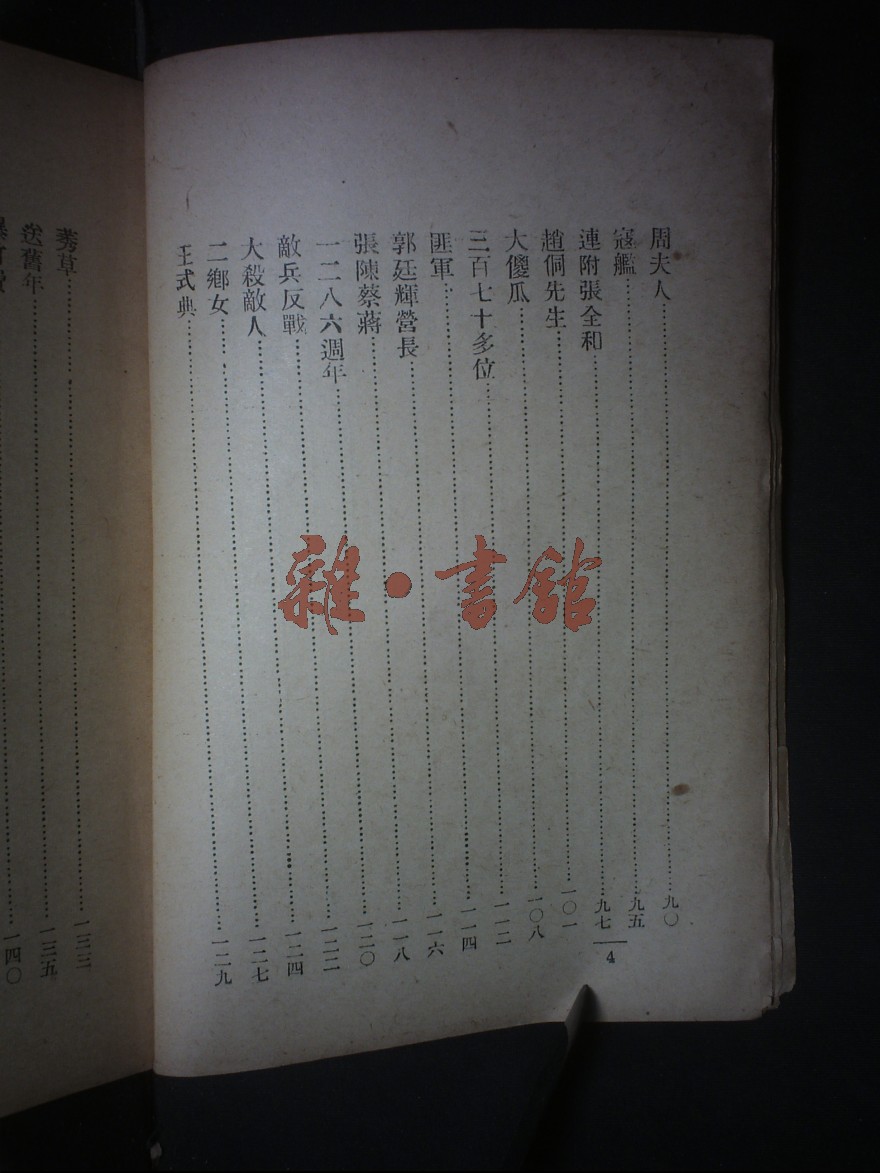 周夫人……九〇
寇艦……九五
連附張全和……九七
趙侗先生……一〇一
大傻瓜……一〇八
三百七十多位……一一二
匪軍……一一四
郭廷輝營長……一一六
張陳蔡蔣……一一八
一二八六週年……一二〇
敵兵反戰……一二二
大殺敵人……一二四
二鄉女……一二七
王式典……一二九
4
莠草……一三三
送舊年……一三五
一四〇
雜·書館